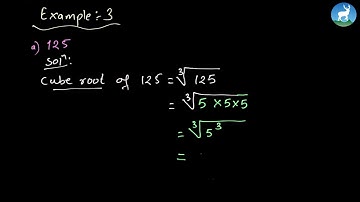 Example:-3
a) 125
Solⁿ:
Cube root of 125 = ∛125
= ∛5×5×5
= ∛5³
=